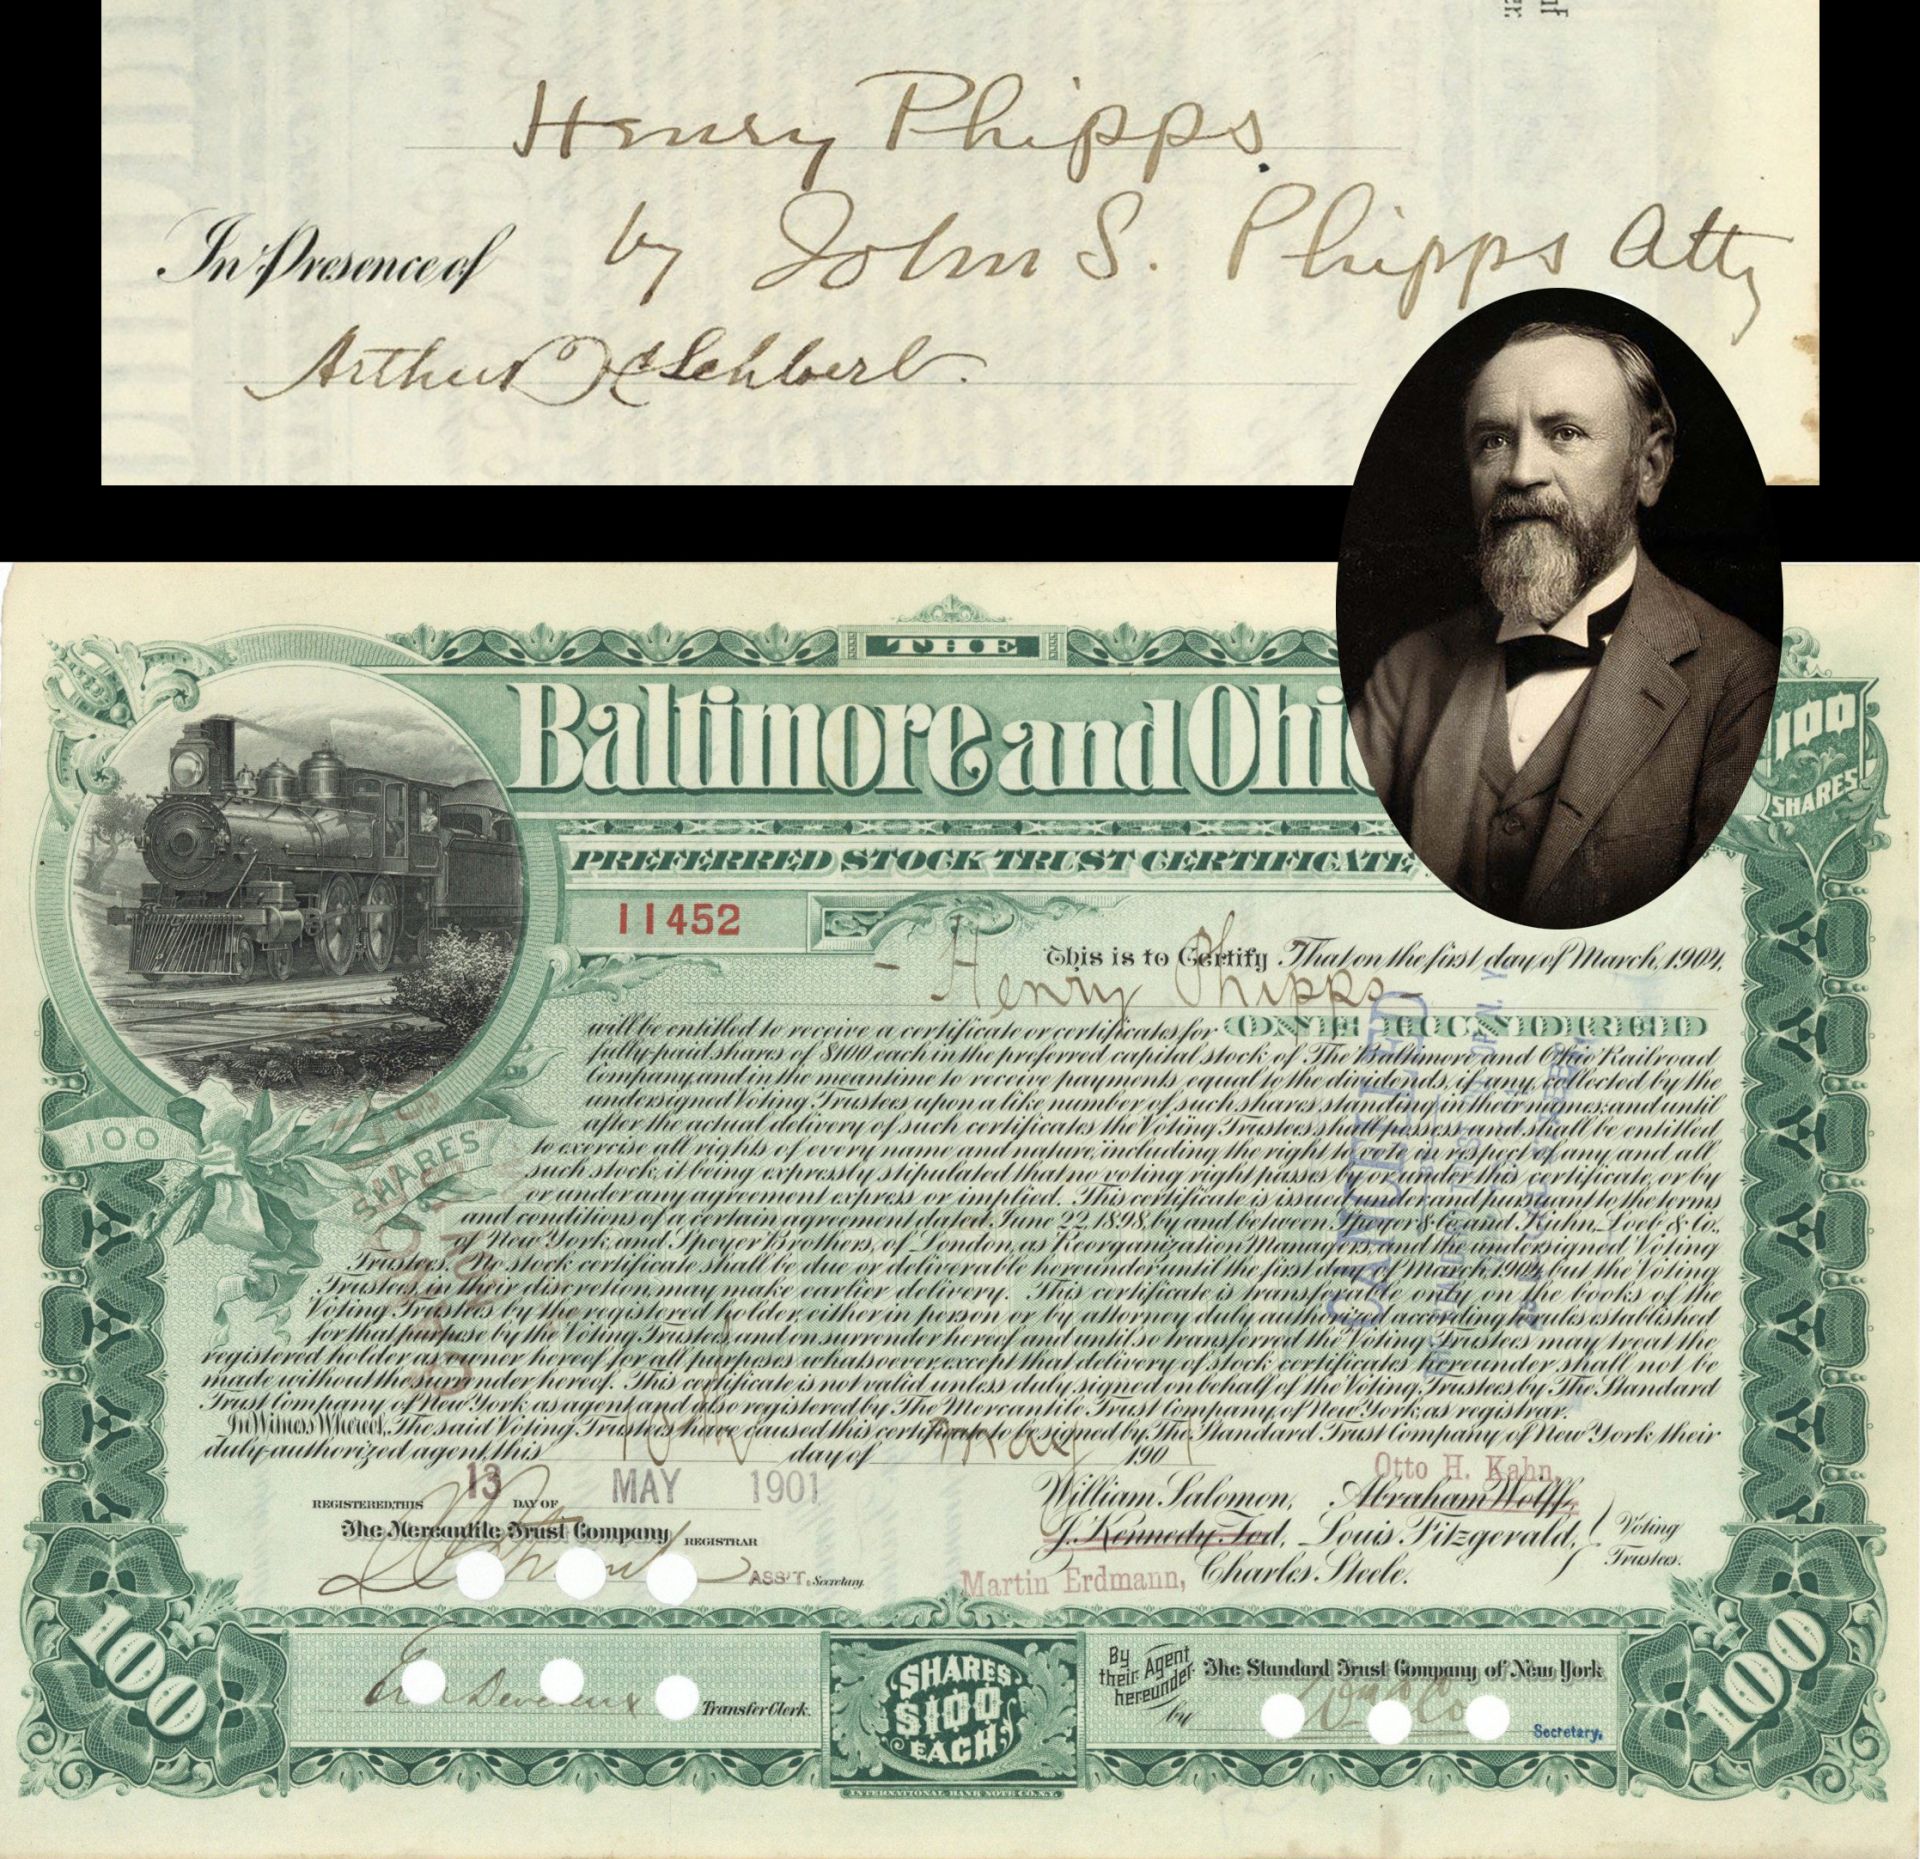 Henry Phipps.
In Presence of by John S. Phipps Atty
Arthur
THE
Baltimore and Ohi
100 SHARES
PREFERRED STOCK TRUST CERTIFICATE
11452
This is to Certify That on the first day of March, 1904,
- Henry Phipps -
will be entitled to receive a certificate or certificates for ONE HUNDRED
fully-paid shares of $100 each in the preferred capital stock of The Baltimore and Ohio Railroad
Company, and in the meantime to receive payments equal to the dividends, if any, collected by the
undersigned Voting Trustees upon a like number of such shares standing in their names; and until
after the actual delivery of such certificates the Voting Trustees shall possess and shall be entitled
to exercise all rights of every name and nature, including the right to vote in respect of any and all
such stock, it being expressly stipulated that no voting right passes by or under this certificate, or by
or under any agreement express or implied. This certificate is issued under and pursuant to the terms
and conditions of a certain agreement dated June 22, 1898, by and between Speyer & Co. and Kuhn, Loeb & Co.,
of New York, and Speyer Brothers, of London, as Reorganization Managers, and the undersigned Voting
Trustees. No stock certificate shall be due or deliverable hereunder until the first day of March, 1904, but the Voting
Trustees, in their discretion, may make earlier delivery. This certificate is transferable only on the books of the
Voting Trustees by the registered holder, either in person or by attorney duly authorized according to rules established
for that purpose by the Voting Trustees, and on surrender hereof and until so transferred the Voting Trustees may treat the
registered holder as owner hereof for all purposes whatsoever, except that delivery of stock certificates hereunder shall not be
made without the surrender hereof. This certificate is not valid unless duly signed on behalf of the Voting Trustees by The Standard
Trust Company of New York, as agent, and also registered by The Mercantile Trust Company, of New York, as registrar.
In Witness Whereof, The said Voting Trustees have caused this certificate to be signed by The Standard Trust Company of New York their
duly authorized agent, this 10th day of May 1901
100 SHARES
CANCELLED
REGISTERED, THIS 13 DAY OF MAY 1901
The Mercantile Trust Company, REGISTRAR
ASS'T. Secretary.
Otto H. Kahn,
William Salomon, Abraham Wolff,
J. Kennedy Tod, Louis Fitzgerald,
Martin Erdmann, Charles Steele.
Voting Trustees.
100
Transfer Clerk.
SHARES
$100
EACH
By their Agent hereunder The Standard Trust Company of New York
by Secretary.
100
INTERNATIONAL BANK NOTE CO. N.Y.